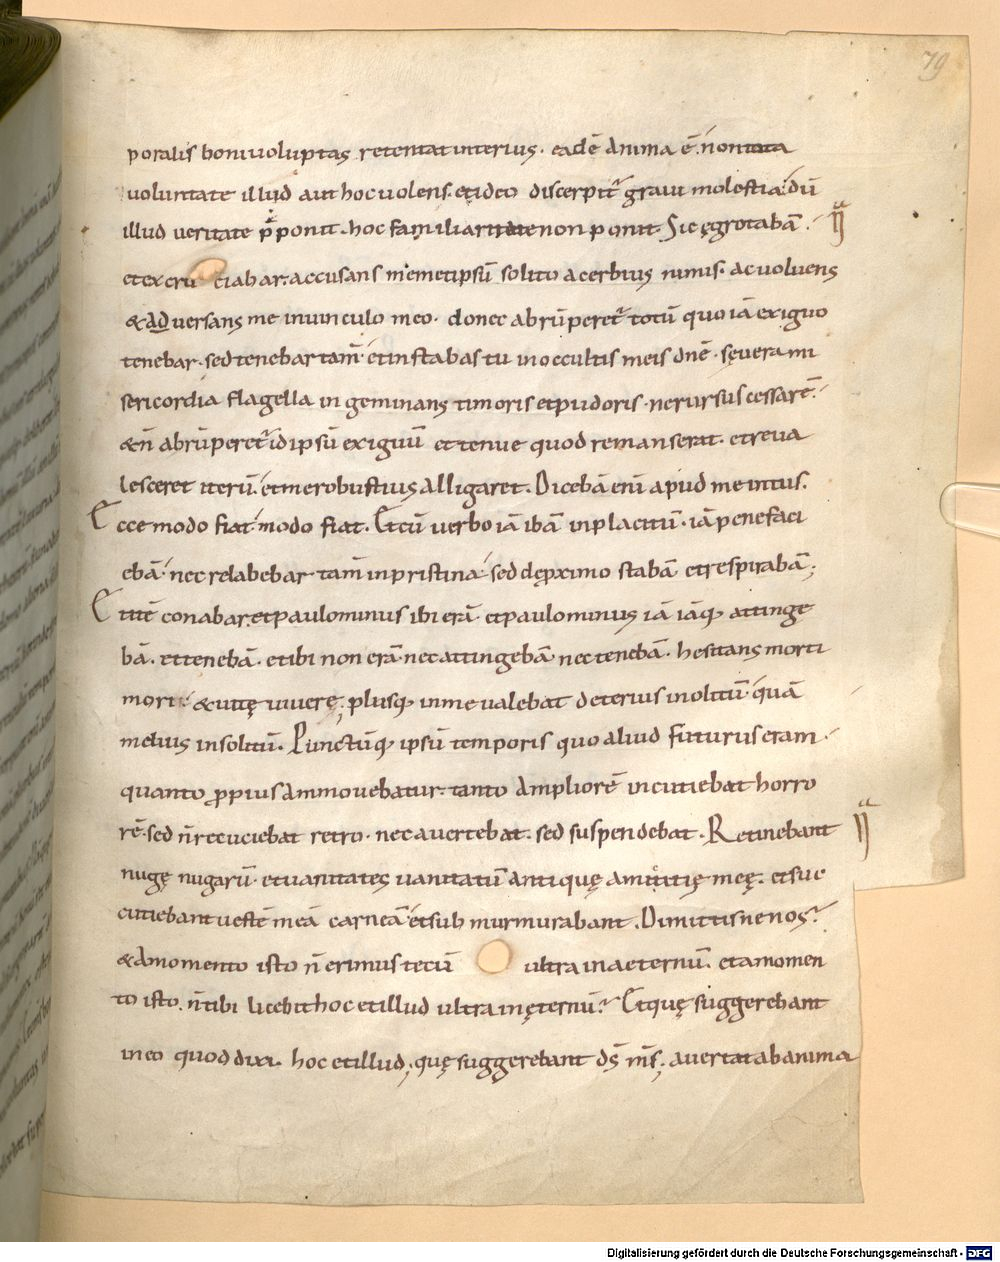 79
poralis boni uoluptas retentat interius. eadē anima ē. non tota
uoluntate illud aut hoc uolens. et ideo discerpit̄ graui molestia. dū
illud ueritate p̄ponit. hoc familiaritate non ponit. Sic ęgrotabā.
et excru ciabar. accusans memetipsū solito acerbius nimis. ac uoluens
& aduersans me in uinculo meo. donec abrūperet̄ totū quo iā exiguo
tenebar. sed tenebar tam̄. et instabas tu in occultis meis dn̄e. sęuera mi
sericordia flagella ingeminans timoris et pudoris. ne rursus cessarē.
& n̄ abrūperet̄ id ipsū exiguū et tenue quod remanserat. et reua
lesceret iterū. et me robustius alligaret. Dicebā enī apud me intus.
Ecce modo fiat modo fiat. Et cū uerbo iā ibā in placitū. iā pene faci
ebā. nec relabebar tam̄ in pristina. sed de ꝓximo stabā et respirabā;
Et itē conabar. et paulo minus ibi erā. et paulo minus iā iāq; attinge
bā. et tenebā. et ibi non erā. nec attingebā nec tenebā. hesitans morti
mori. & uitę uiuere. plusq; in me ualebat deterius inolitū quā
melius insolitū. Punctūq; ipsū temporis quo aliud futurus eram.
quanto ꝓpius ammouebatur. tanto ampliorē incutiebat horro
rē. sed n̄ recuciebat retro. nec auertebat. sed suspendebat. Retinebant
nugę nugarū. et uanitates uanitatū antiquę amicitię meę. et suc
cutiebant uestē meā carneā. et submurmurabant. Dimittisne nos?
& a momento isto n̄ erimus tecū ultra in aeternū. et a momen
to isto. n̄ tibi licebit hoc et illud ultra in ęternū? Et quę suggerebant
in eo quod dixi. hoc et illud; quę suggerebant ds̄ ms̄; auertat ab anima
Digitalisierung gefördert durch die Deutsche Forschungsgemeinschaft - DFG